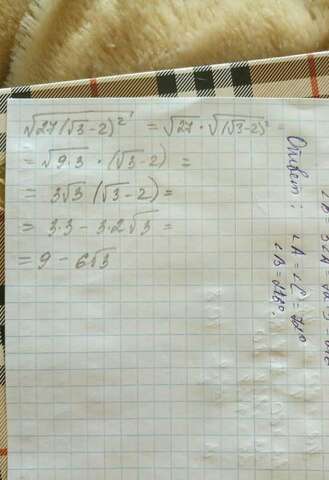 √27(√3-2)² = √27 · √(√3-2)² =
= √9·3 · (√3-2) =
= 3√3 (√3-2) =
= 3·3 - 3·2√3 =
= 9 - 6√3
Ответ: ∠A = ∠C =
∠B =